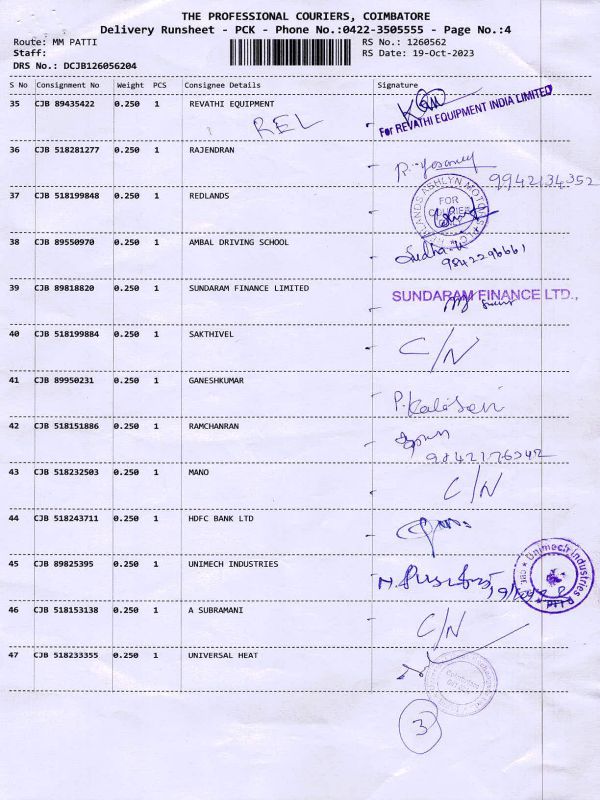 THE PROFESSIONAL COURIERS, COIMBATORE
Delivery Runsheet - PCK - Phone No.:0422-3505555 - Page No.:4
Route: MM PATTI RS No.: 1260562
Staff: RS Date: 19-Oct-2023
DRS No.: DCJB126056204
S No Consignment No Weight PCS Consignee Details Signature
35 CJB 89435422 0.250 1 REVATHI EQUIPMENT
REL For REVATHI EQUIPMENT INDIA LIMITED
36 CJB 518281277 0.250 1 RAJENDRAN
9942134352
37 CJB 518199848 0.250 1 REDLANDS
REDLANDS ASHLYN MOTORS
FOR
38 CJB 89550970 0.250 1 AMBAL DRIVING SCHOOL
Sudha.
9842296661
39 CJB 89818820 0.250 1 SUNDARAM FINANCE LIMITED
SUNDARAM FINANCE LTD.,
40 CJB 518199884 0.250 1 SAKTHIVEL
C/N
41 CJB 89950231 0.250 1 GANESHKUMAR
42 CJB 518151886 0.250 1 RAMCHANRAN
43 CJB 518232503 0.250 1 MANO
C/N
44 CJB 518243711 0.250 1 HDFC BANK LTD
45 CJB 89825395 0.250 1 UNIMECH INDUSTRIES
Unimech Industries
46 CJB 518153138 0.250 1 A SUBRAMANI
C/N
47 CJB 518233355 0.250 1 UNIVERSAL HEAT
3